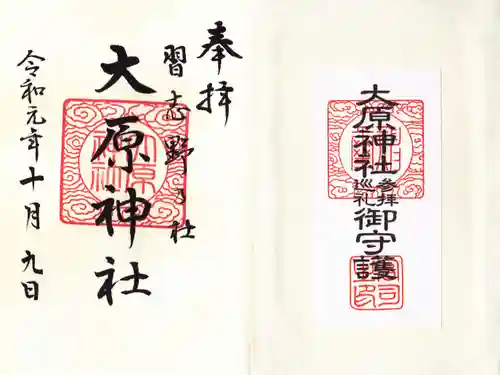 奉拝
習志野乃社
大原神社
令和元年十月九日
大原神社
参拝
巡礼
御守護